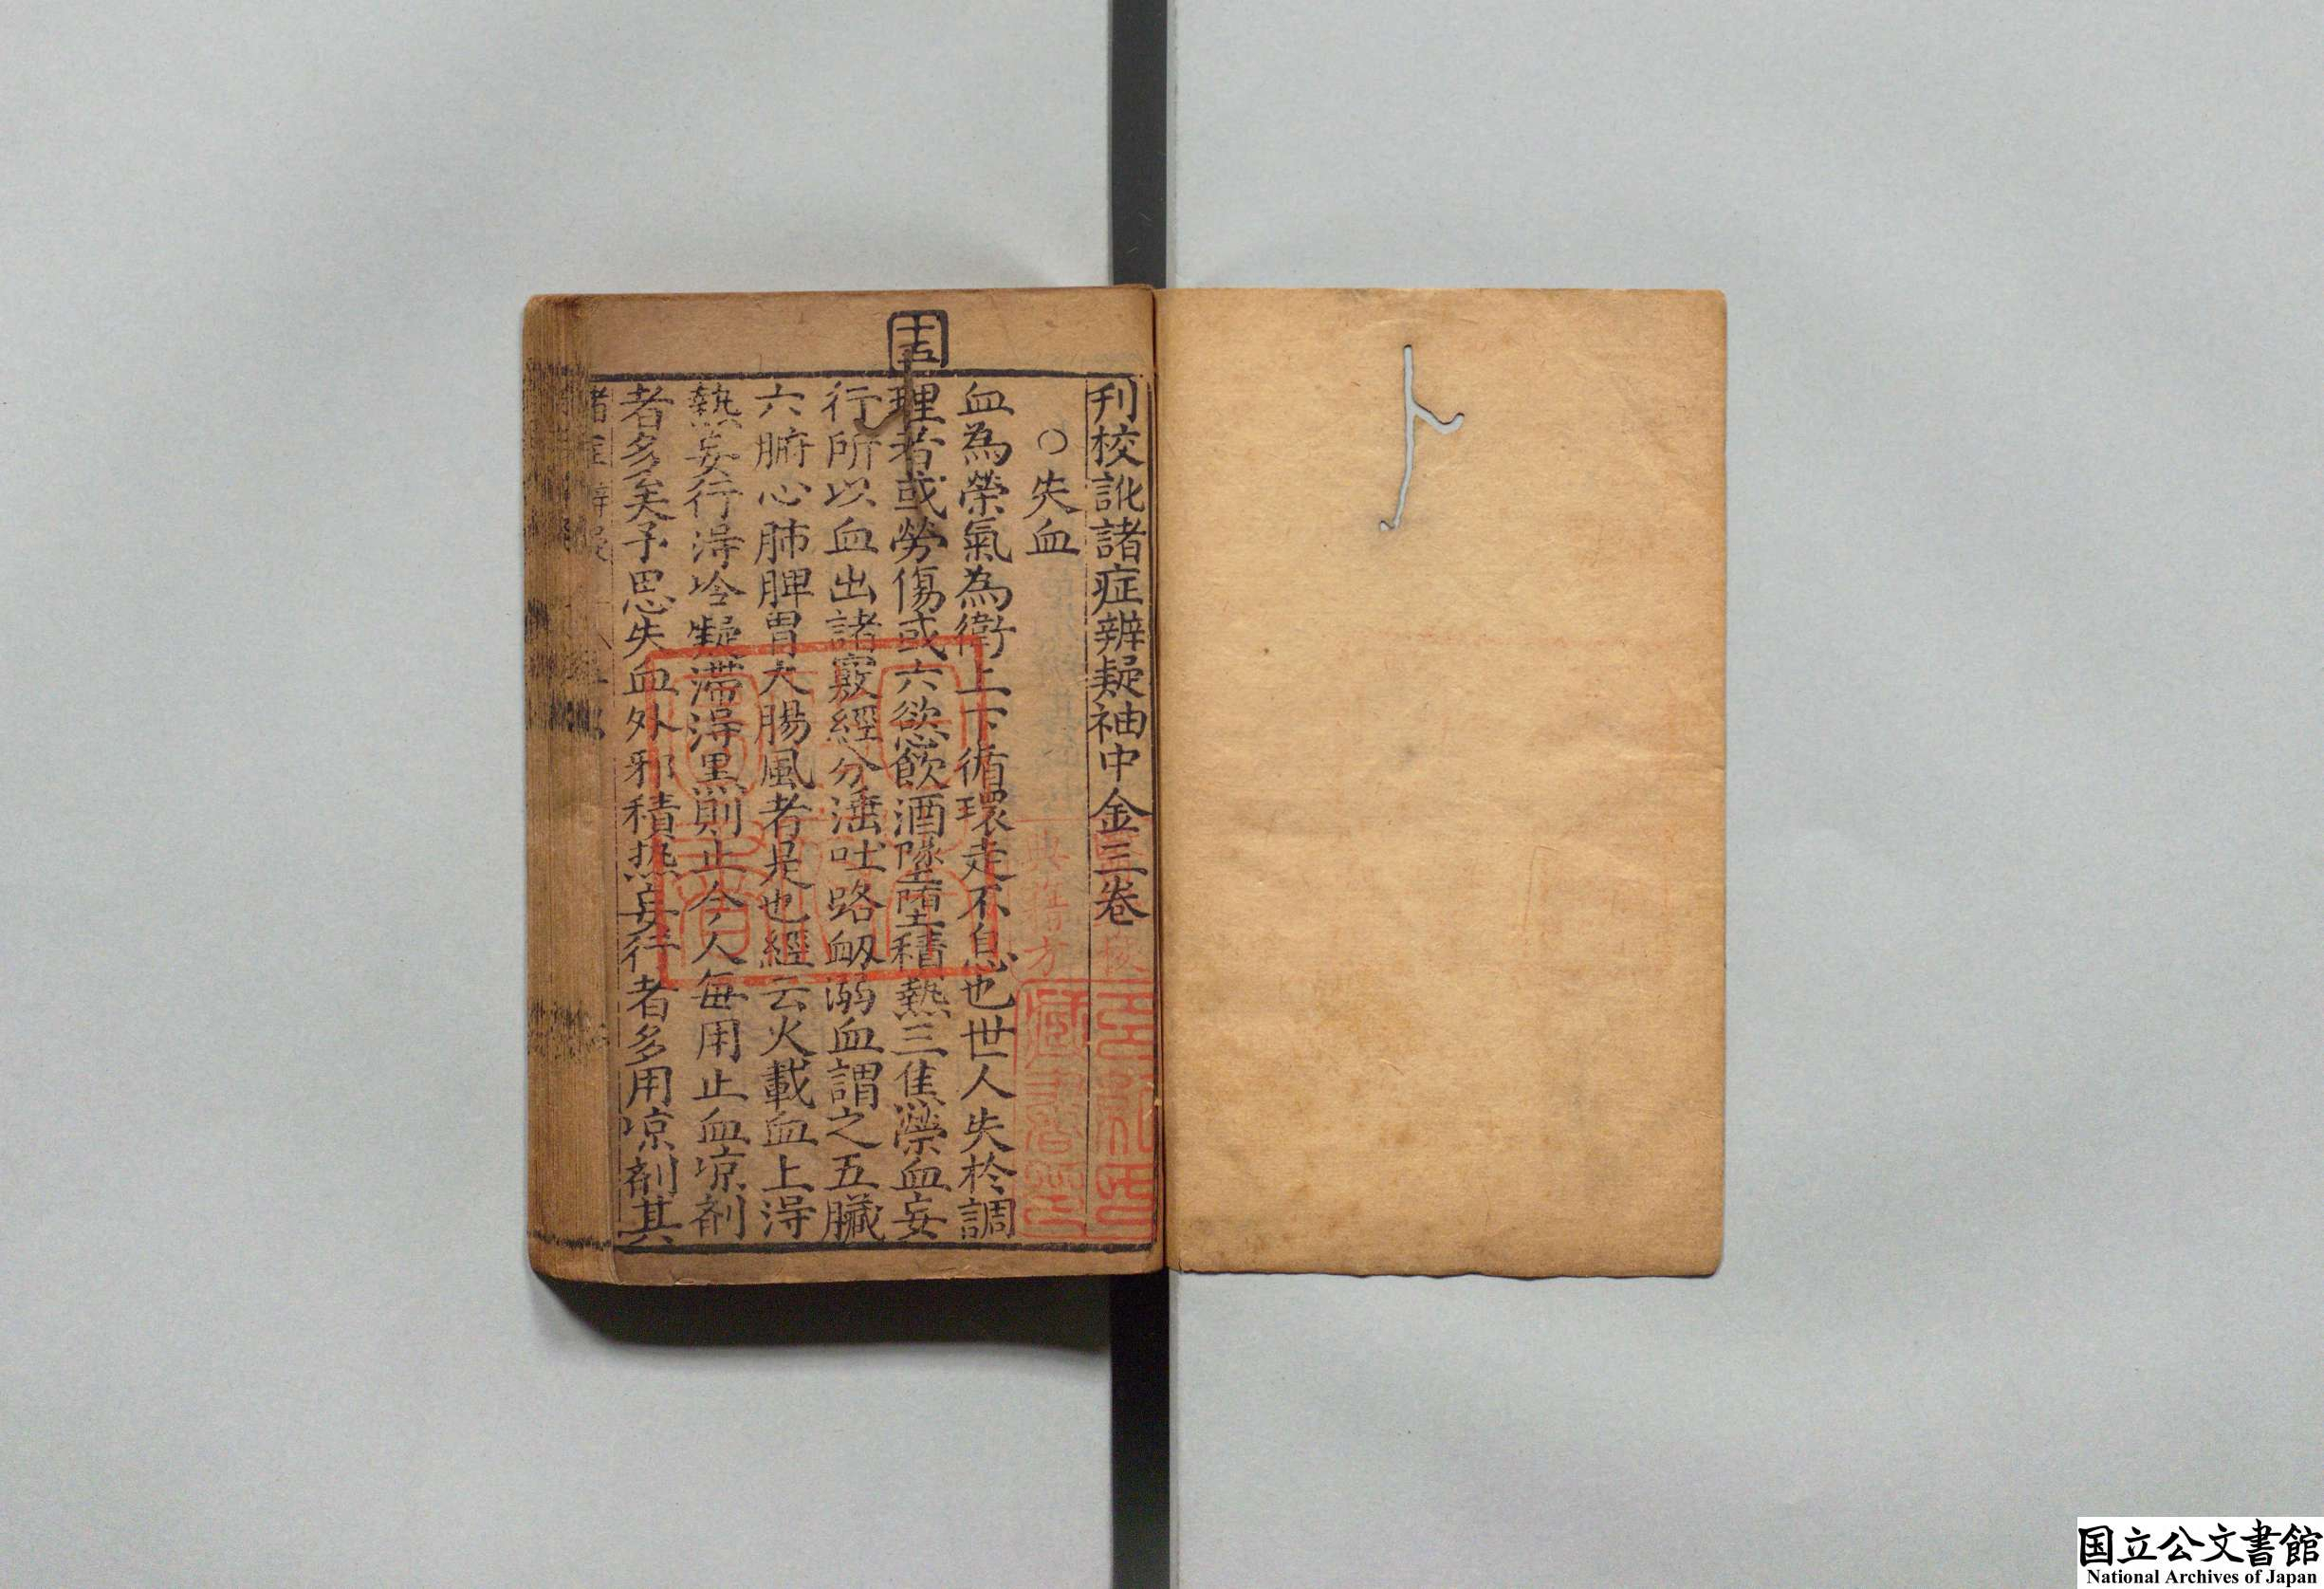 刊校訛諸症辨疑袖中金三卷
○失血
血為榮氣為衛上下循環走不息也世人失於調
理者或勞傷或六慾飲酒墜堕積熱三焦榮血妄
行所以血出諸竅經分湮吐咯衂溺血謂之五臟
六腑心肺脾胃大腸風者是也經云火載血上淂
熱妄行淂冷凝滯淂黒則止今人每用止血凉剤
者多矣予思失血外邪積热妄行者多用凉剤其
国立公文書館
National Archives of Japan